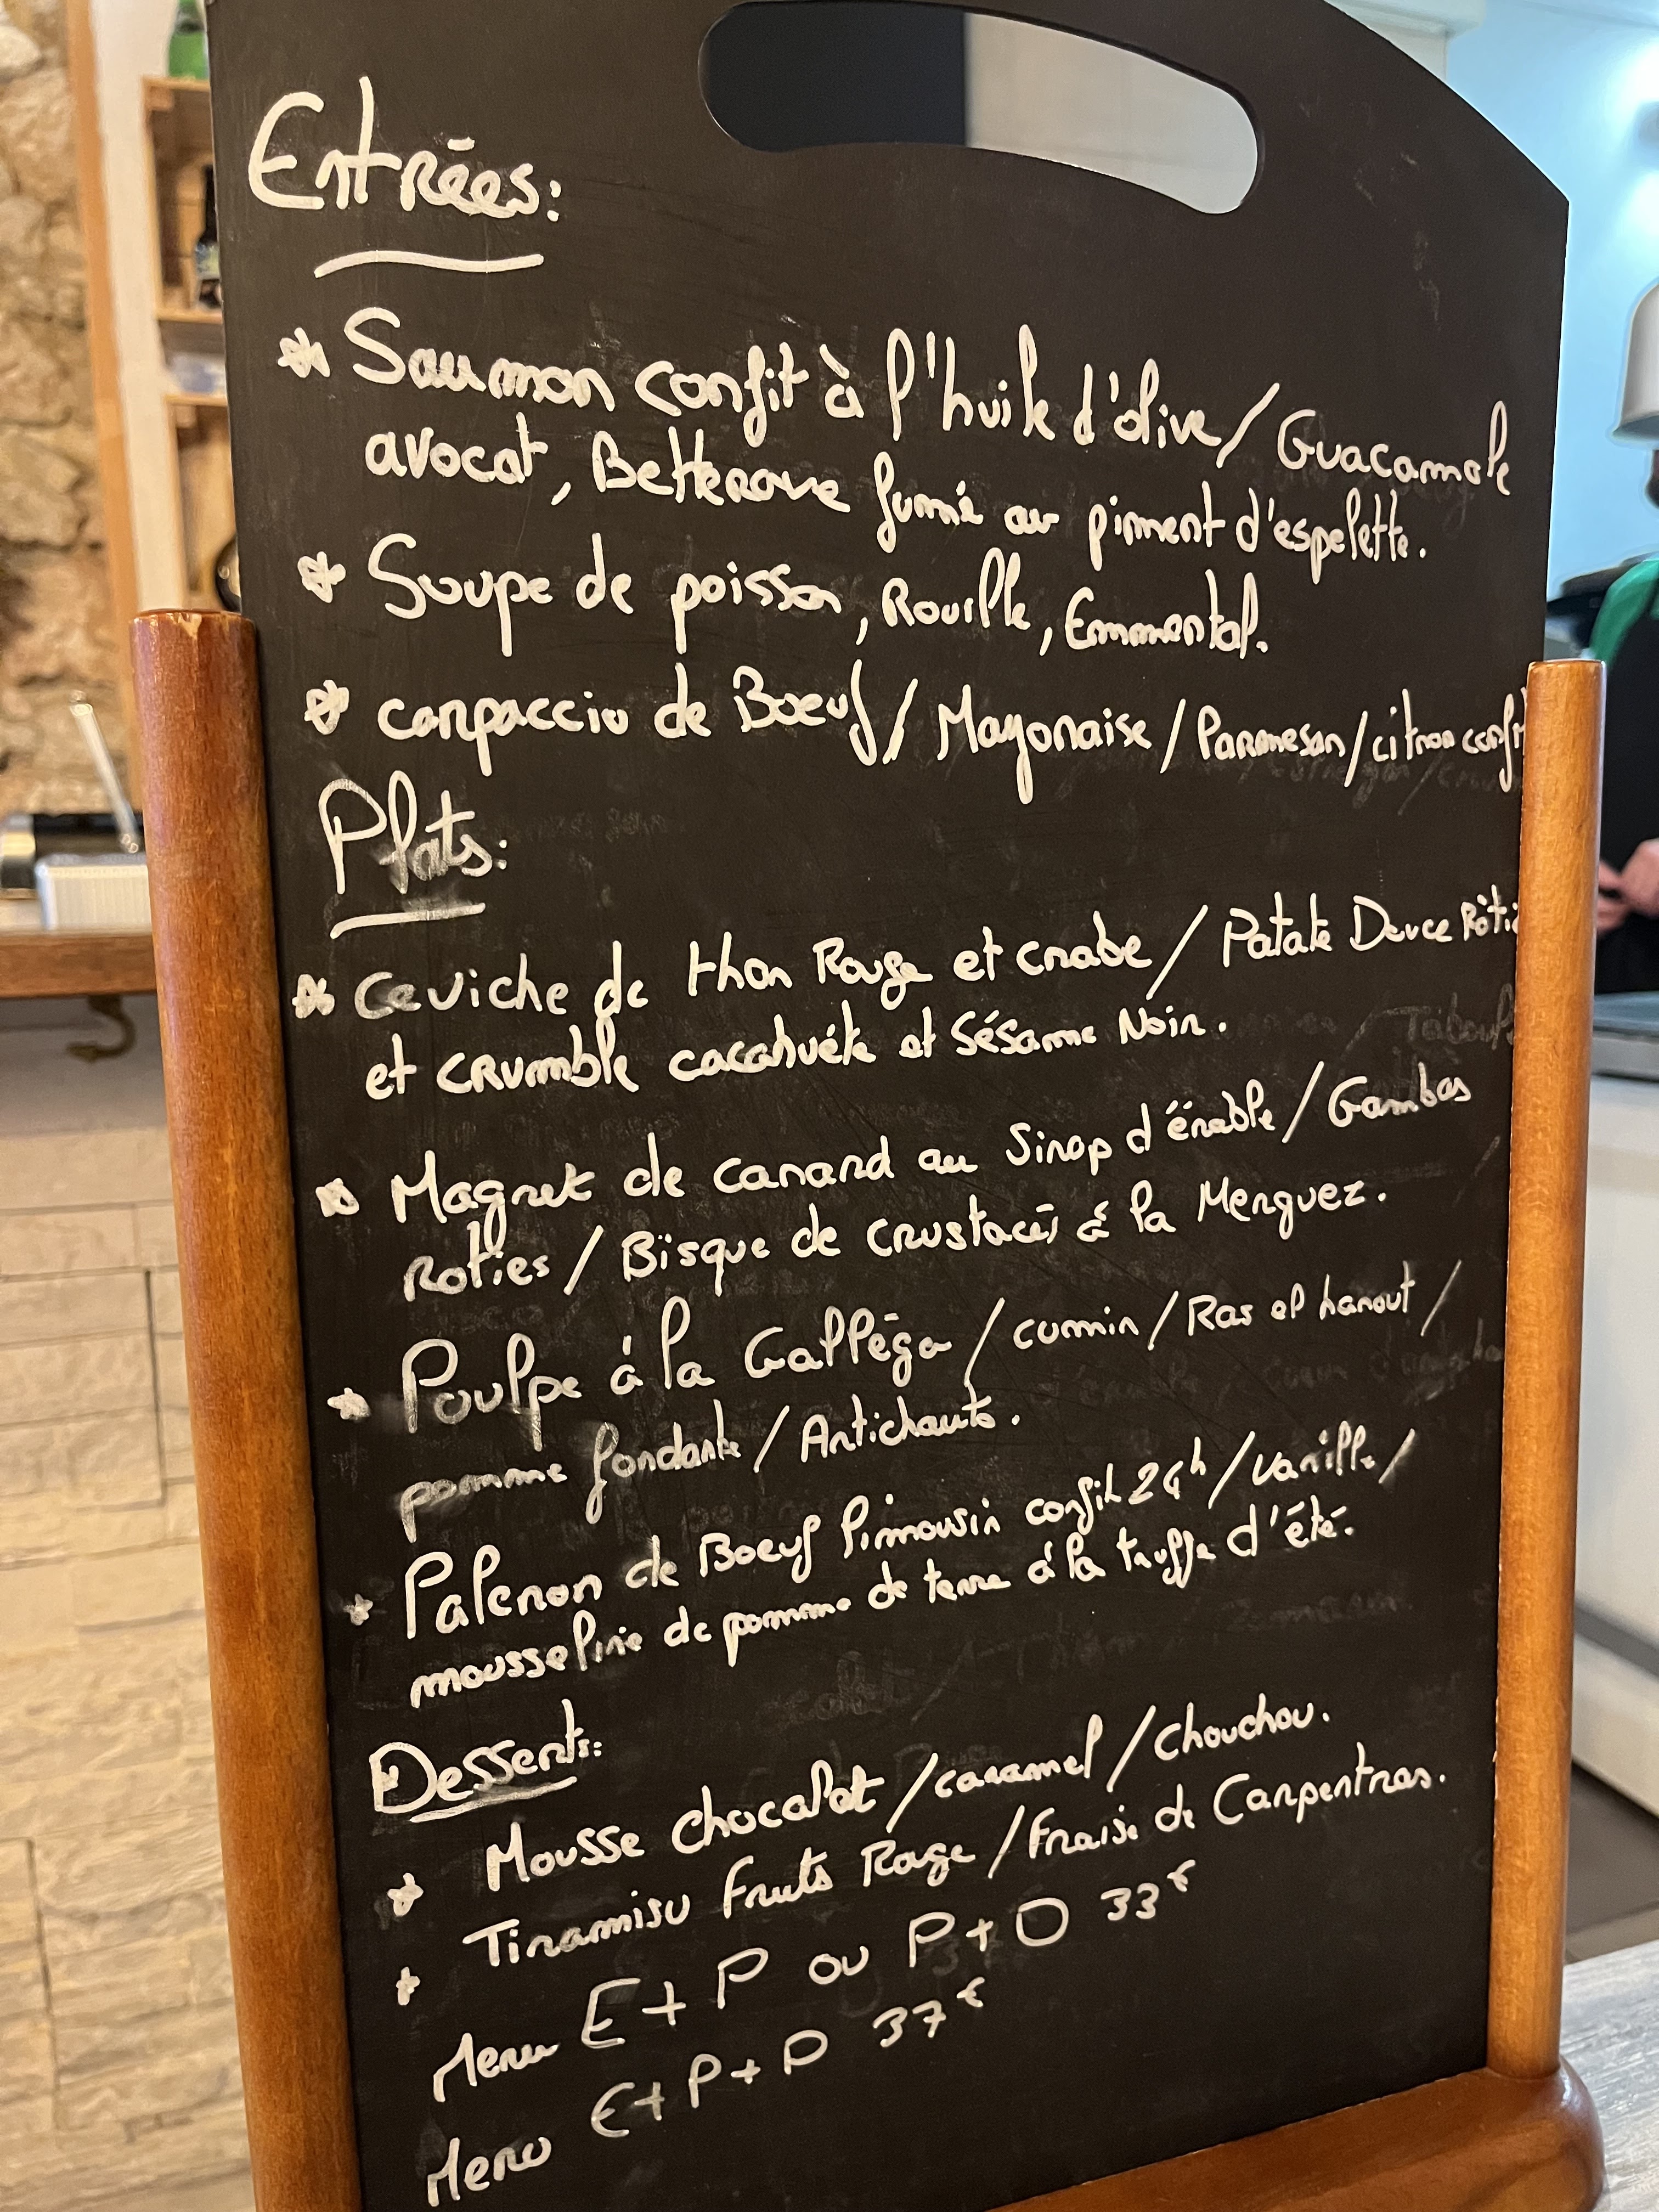 Entrées:
* Saumon confit à l'huile d'olive / Guacamole
avocat, Betterave fumé au piment d'espelette.
* Soupe de poisson, Rouille, Emmental.
* carpaccio de Boeuf / Mayonaise / Parmesan / citron confit
Plats:
* Ceviche de thon Rouge et crabe / Patate Douce Rôtie
et crumble cacahuéte et Sésame Noir.
* Magret de canard au Sirop d'érable / Gambas
Roties / Bisque de crustacés á la Merguez.
* Poulpe á la Galléga / cumin / Ras el hanout /
pomme fondante / Artichauts.
* Paleron de Boeuf limousin confit 24h / Vanille /
mousseline de pomme de terre á la truffe d'été.
Desserts:
* Mousse chocolat / caramel / Chouchou.
* Tiramisu Fruits Rouge / Fraise de Carpentras.
Menu E + P ou P + D 33€
Menu E + P + D 37€